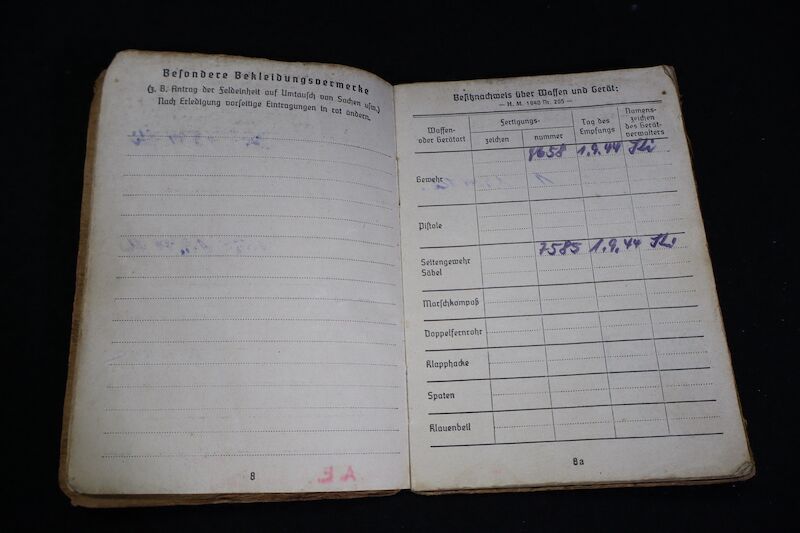 Besondere Bekleidungsvermerke
(z. B. Antrag der Feldeinheit auf Umtausch von Sachen usw.)
Nach Erledigung vorseitige Eintragungen in rot ändern.
8
A.E.
Besitznachweis über Waffen und Gerät:
— H. M. 1940 Nr. 205 —
Waffen- oder Geräteart
Fertigungs-
zeichen nummer
Tag des Empfangs
Namens- zeichen des Gerät- verwalters
Gewehr 1.9.44
Pistole
Seitengewehr 7585 1.9.44
Säbel
Marschkompaß
Doppelfernrohr
Klapphacke
Spaten
Klauenbeil
8a